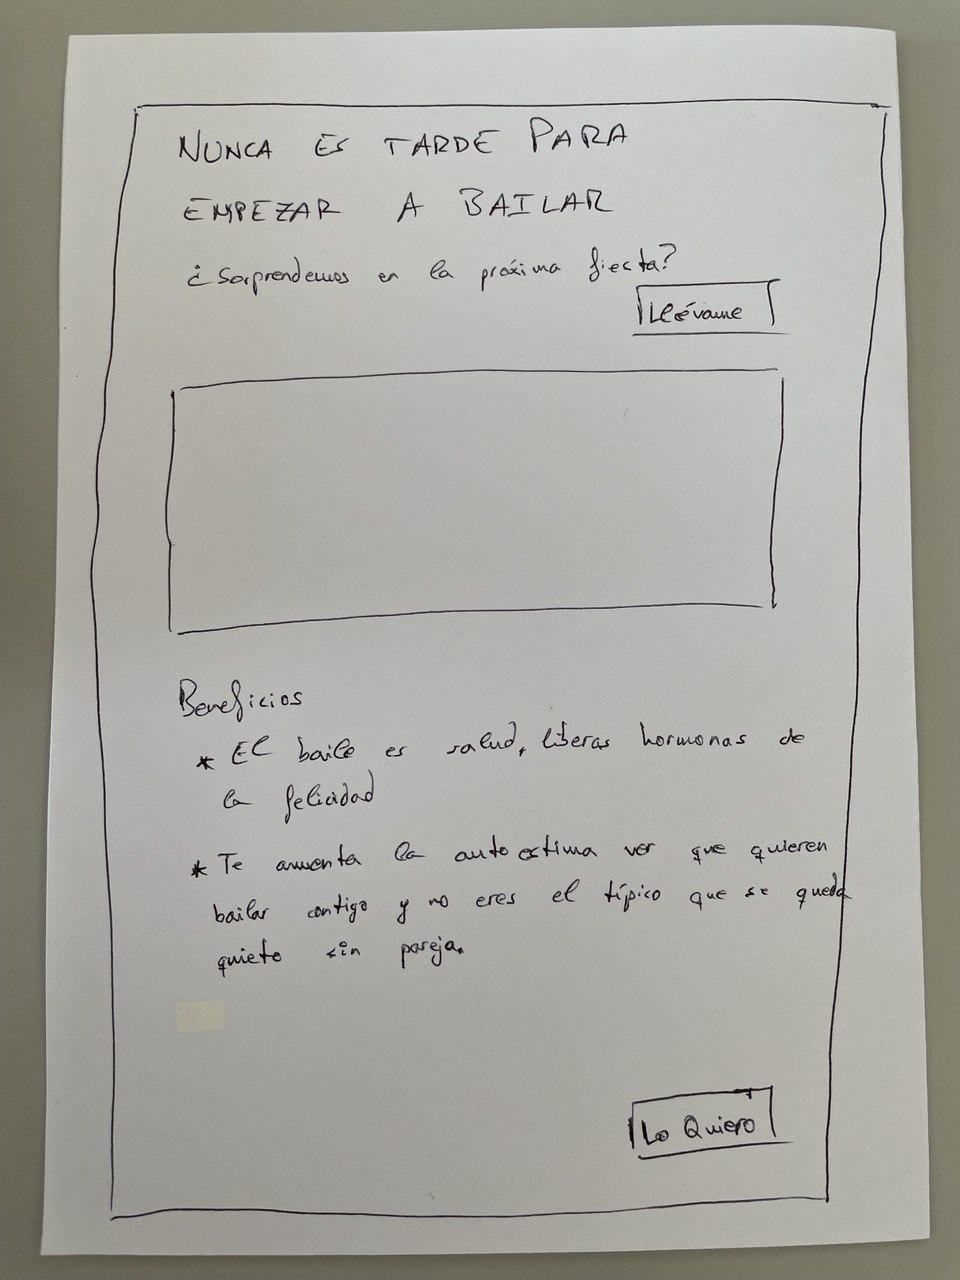 NUNCA ES TARDE PARA
EMPEZAR A BAILAR
¿Sorprendemos en la próxima fiesta?
Llévame
Beneficios
* El baile es salud, liberas hormonas de
la felicidad
* Te aumenta la autoestima ver que quieren
bailar contigo y no eres el típico que se queda
quieto sin pareja.
Lo Quiero